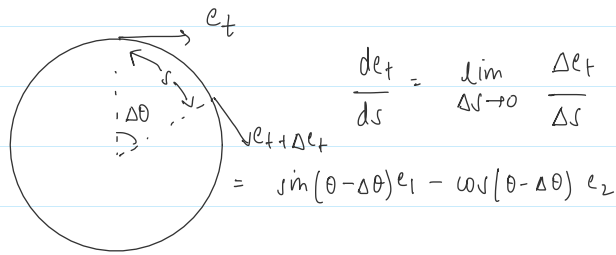 e_t
s
Δθ
e_t+Δe_t
de_t/ds = lim Δs→0 Δe_t/Δs
= sin(θ-Δθ)e_1 - cos(θ-Δθ) e_2